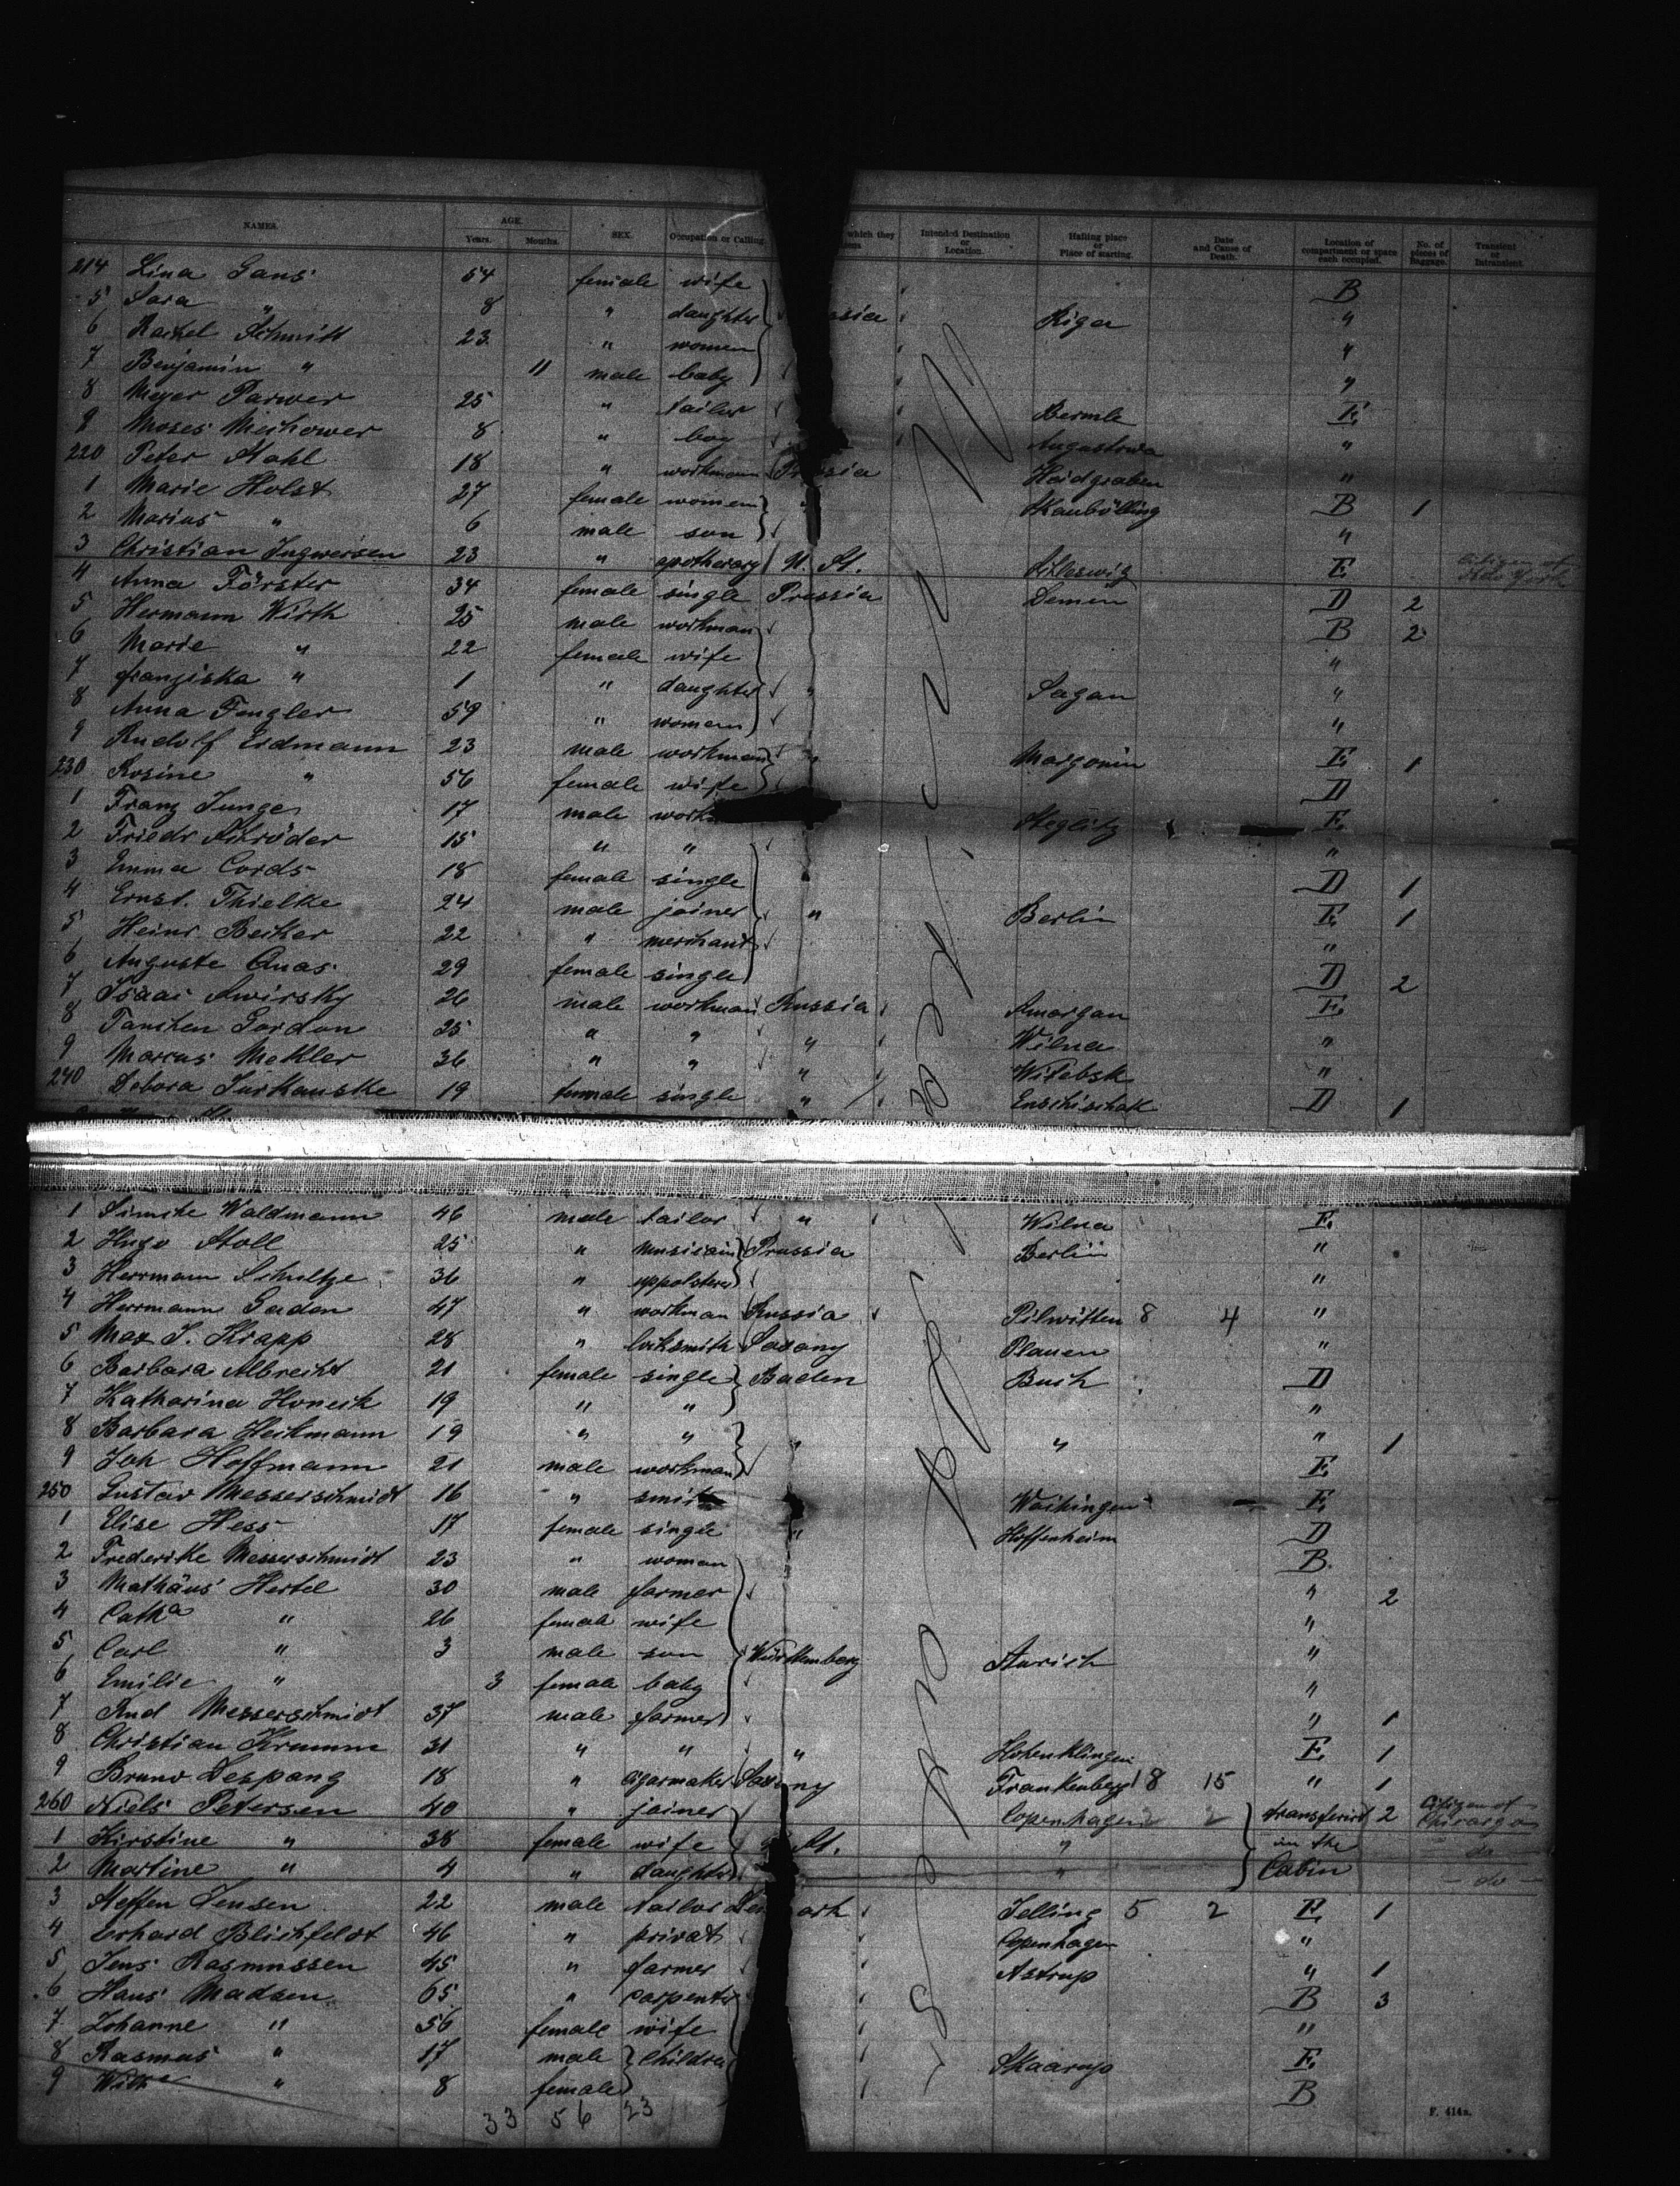 NAMES. AGE. Years. Months. SEX. Occupation or Calling. which they Intended Destination or Location. Hailing place or Place of starting. Date and Cause of Death. Location of compartment or space each occupied. No. of pieces of Baggage. Transient or Intransient.
214 Lina Gans 54 female wife B
5 Sara " 8 " daughter ssia Riga "
6 Rachel Schmitt 23 " women "
7 Benjamin " 11 male baby "
8 Meyer Parwer 25 " tailor E
9 Moses 8 " boy "
220 Peter Stahl 18 " workmann Pr ssia Haidgraben "
1 Marie Holst 27 female women " B 1
2 Marius " 6 male son "
3 Christian Ingwersen 23 " apothecary U. St. Schleswig E Citizen of New York
4 Anna Förster 34 female single Prussia Demen D 2
5 Hermann Wirth 25 male workman B 2
6 Marie " 22 female wife "
7 Franziska " 1 " daughter " Sagan "
8 Anna Fengler 59 " women "
9 Rudolf Erdmann 23 male workman " Margonin E 1
230 Rosine " 56 female wife D
1 Franz Junge 17 male work Steglitz E
2 Friedr Schröder 15 " " "
3 Emma Cords 18 female single D 1
4 Ernst Thielke 24 male joiner " Berlin E 1
5 Heinr. Becker 22 " merchant "
6 Auguste Quas 29 female single D 2
7 Isaac Swirsky 26 male workman Russia Smorgan E
8 Tanchen Gordon 25 " " " Wilna "
9 Marcus Mekler 36 " " " Witebsk "
240 Debora 19 female single " D 1
1 Simche Waldmann 46 male tailor " Wilna E
2 Hugo Stoll 25 " musiciain Prussia Berlin "
3 Herrmann Schultze 36 " uppolsterer "
4 Herrmann Gadan 47 " workman Russia Pilwitten 8 4 "
5 Max J. Krapp 28 " locksmith Saxony Plauen "
6 Barbara Albrecht 21 female single Baden Buch D
7 Katharina Honeck 19 " " "
8 Barbara Heckmann 19 " " " " " 1
9 Joh Hoffmann 21 male workman E
250 Gustav Messerschmidt 16 " smit Waihingen E
1 Elise Hess 17 female single " Hoffenheim D
2 Frederike Messerschmidt 23 " woman B.
3 Mathäus Hertel 30 male farmer " 2
4 Catha " 26 female wife "
5 Carl " 3 male son Württemberg Aurich "
6 Emilie " 3 female baby "
7 And Messerschmidt 37 male farmer " 1
8 Christian Krumm 31 " " " Hohenklingen E 1
9 Bruno Lespang 18 " cigarmaker Sax ny Frankenberg 18 15 " 1
260 Niels Petersen 40 " joiner Copenhagen 2 transferirt 2 Citizen of Chicago
1 Kirstine " 38 female wife St. " in the do
2 Martine " 4 " daughter " Cabin do
3 Steffen Jensen 22 male tailor Den ark Jelling 5 2 E 1
4 Erhard Blichfeldt 46 " privat Copenhagen "
5 Jens Rasmussen 45 " farmer Astrup " 1
6 Hans Madsen 65 " carpenter B 3
7 Johanne " 56 female wife "
8 Rasmus " 17 male children Skaarup E
9 " 8 female B
33 56 23
F. 414a.